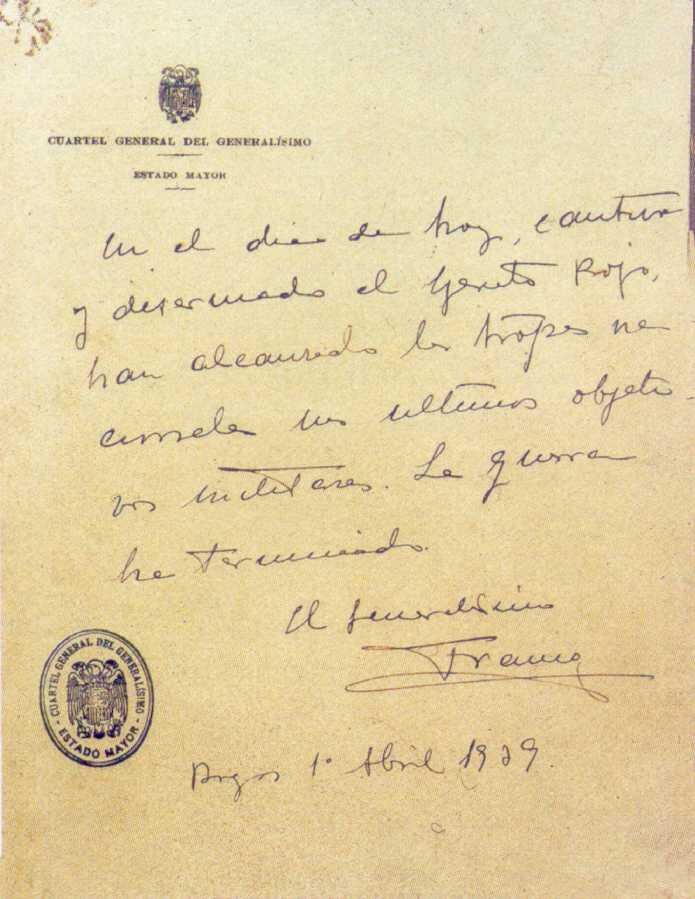 CUARTEL GENERAL DEL GENERALÍSIMO
ESTADO MAYOR
En el dia de hoy, cautivo
y desarmado el Ejercito Rojo,
han alcanzado las tropas na
cionales sus ultimos objeti-
vos militares. La guerra
ha terminado.
El Generalisimo
Franco
Burgos 1º Abril 1939.
CUARTEL GENERAL DEL GENERALÍSIMO
- ESTADO MAYOR -